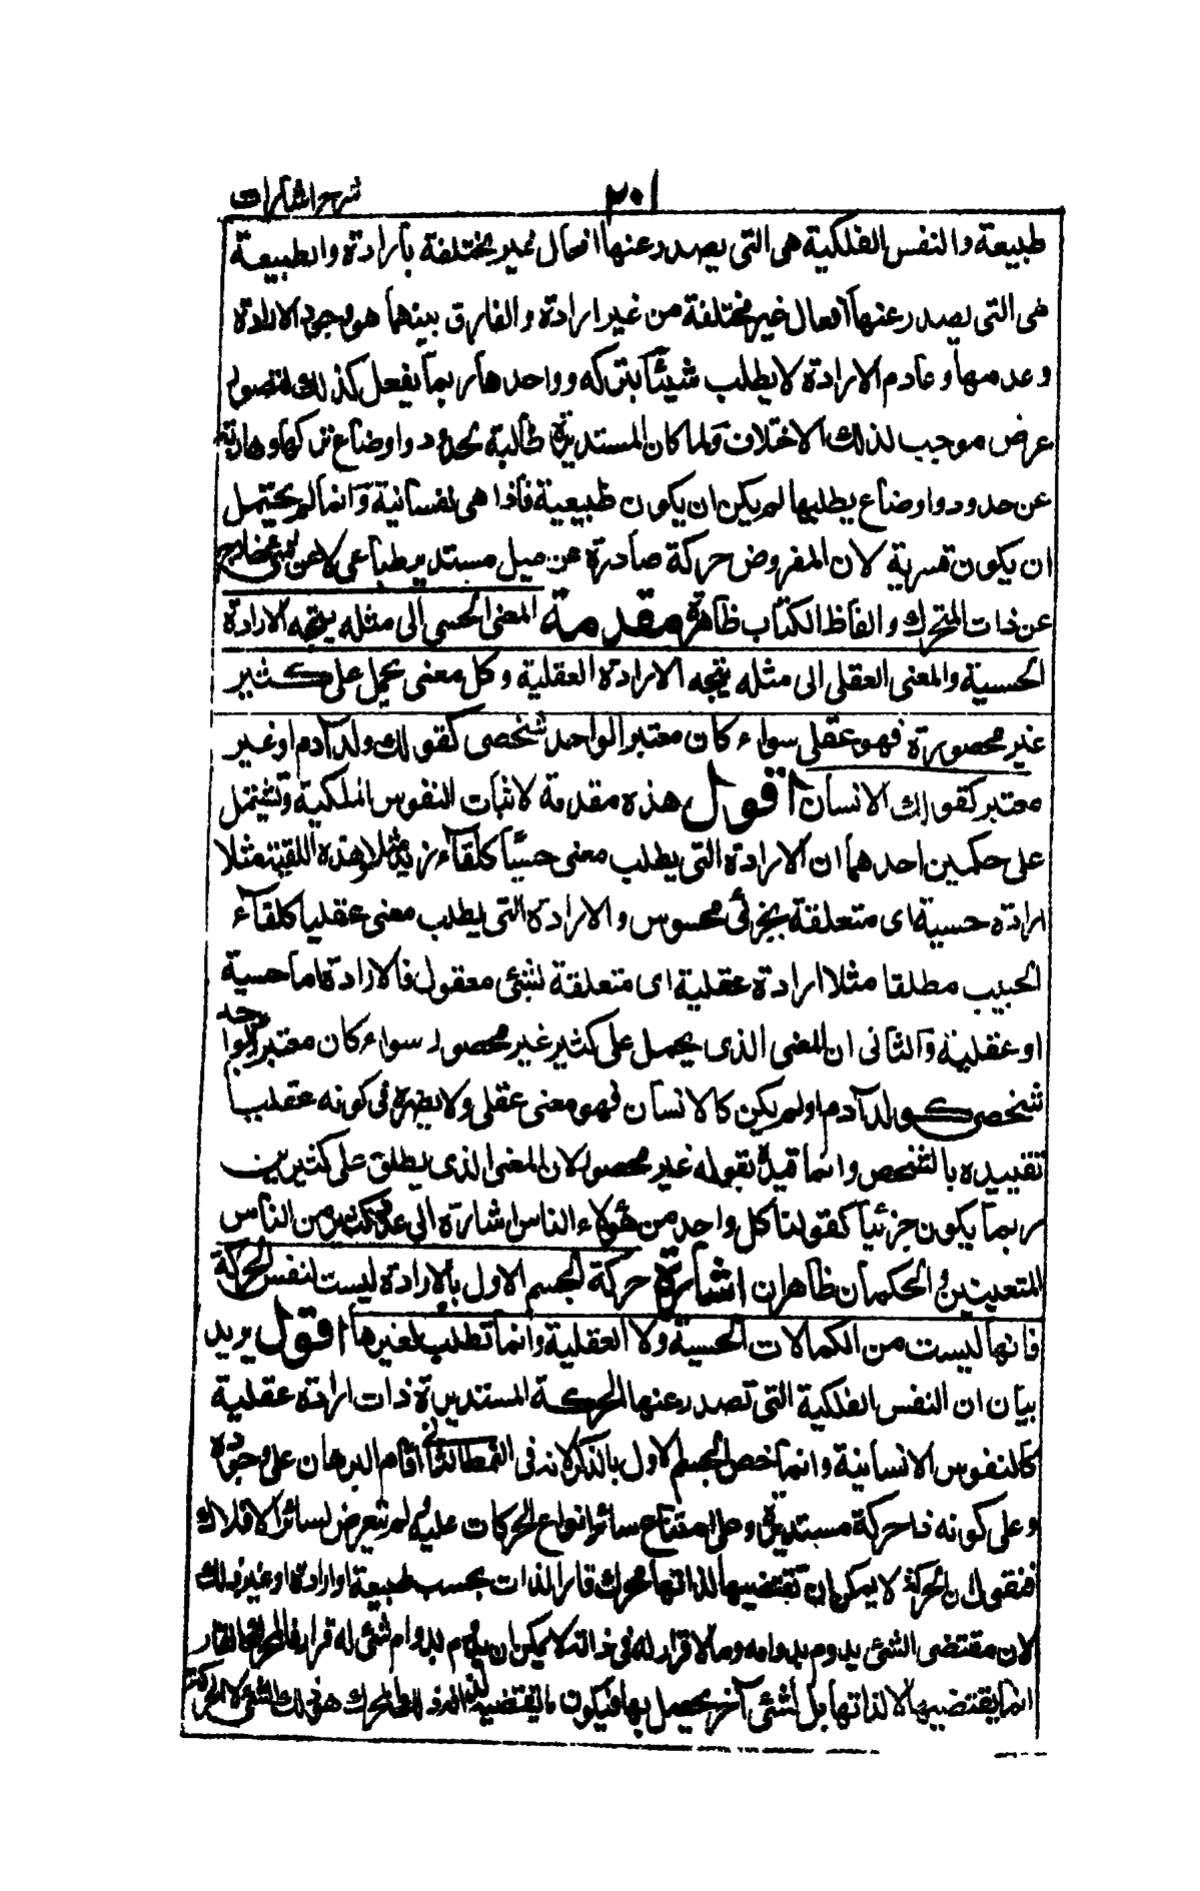 ٢٠١ شرح اشارات
طبيعة والنفس الفلكية هى التى يصدر عنها افعال غير مختلفة بارادة والطبيعة
هى التى يصدر عنها افعال غير مختلفة من غير ارادة والفارق بينهما هو وجود الارادة
وعدمها وعادم الارادة لا يطلب شيئا بتركه وواجدها ربما يفعل كذلك لتصور
غرض موجب لذلك الاختلاف ولما كان المستديرة طالبة لحدود واوضاع تركها وهاربة
عن حدود واوضاع يطلبها لم يكن ان يكون طبيعية فاذا هى نفسانية وانما لم يحتمل
ان يكون قسرية لان المفروض حركة صادرة عن ميل مستدير طباعى لا عن شئ خارج
عن ذات المتحرك والفاظ الكتاب ظاهرة مقدمة المعنى الحسى الى مثله يتجه الارادة
الحسية والمعنى العقلى الى مثله يتجه الارادة العقلية وكل معنى يحمل على كثير
غير محصورة فهو عقلى سواء كان معتبرا لواحد شخصى كقولك ولد آدم او غير
معتبر كقولك الانسان اقول هذه مقدمة لاثبات النفوس الفلكية وتشتمل
على حكمين احدهما ان الارادة التى يطلب معنى حسيا كلقاء زيد مثلا وهذه اللقية مثلا
ارادة حسية اى متعلقة بجزئى محسوس والارادة التى يطلب معنى عقليا كلقاء
الحبيب مطلقا مثلا ارادة عقلية اى متعلقة بشئ معقول فالارادة اما حسية
او عقلية والثانى ان المعنى الذى يحمل على كثير غير محصور سواء كان معتبرا لواحد
شخصى كولد آدم او لم يكن كالانسان فهو معنى عقلى ولا يضره فى كونه عقليا
تقييده بالشخص وانما قيده بقوله غير محصور لان المعنى الذى يطلق على كثيرين
ربما يكون جزئيا كقولنا كل واحد من هؤلاء الناس اشارة الى عدد كثير من الناس
المتعينين والحكمان ظاهران اشارة حركة الجسم الاول بالارادة ليست لنفس الحركة
فانها ليست من الكمالات الحسية ولا العقلية وانما تطلب لغيرها اقول يريد
بيان ان النفس الفلكية التى تصدر عنها الحركة المستديرة ذات ارادة عقلية
كالنفوس الانسانية وانما خص الجسم الاول بالذكر لانه فى النمط الثانى اقام البرهان على وجوده
وعلى كونه ذا حركة مستديرة وعلى امتناع سائر انواع الحركات عليه ولم يتعرض لسائر الافلاك
فنقول ان الحركة لا يمكن ان تقتضيها لذاتها محرك قار الذات بحسب طبيعة او ارادة او غير ذلك
لان مقتضى الشئ يدوم بدوامه وما لا قرار له فى ذاته لا يمكن ان يدوم بدوام شئ له قرار فالمحرك القار
انما يقتضيها لا لذاتها بل لشئ آخر يحصل بها فيكون ما يقتضيه لذاته المحرك هو ذلك الشئ لا الحركة